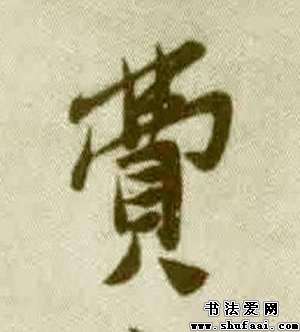 費
书法爱网
www.shufaai.com